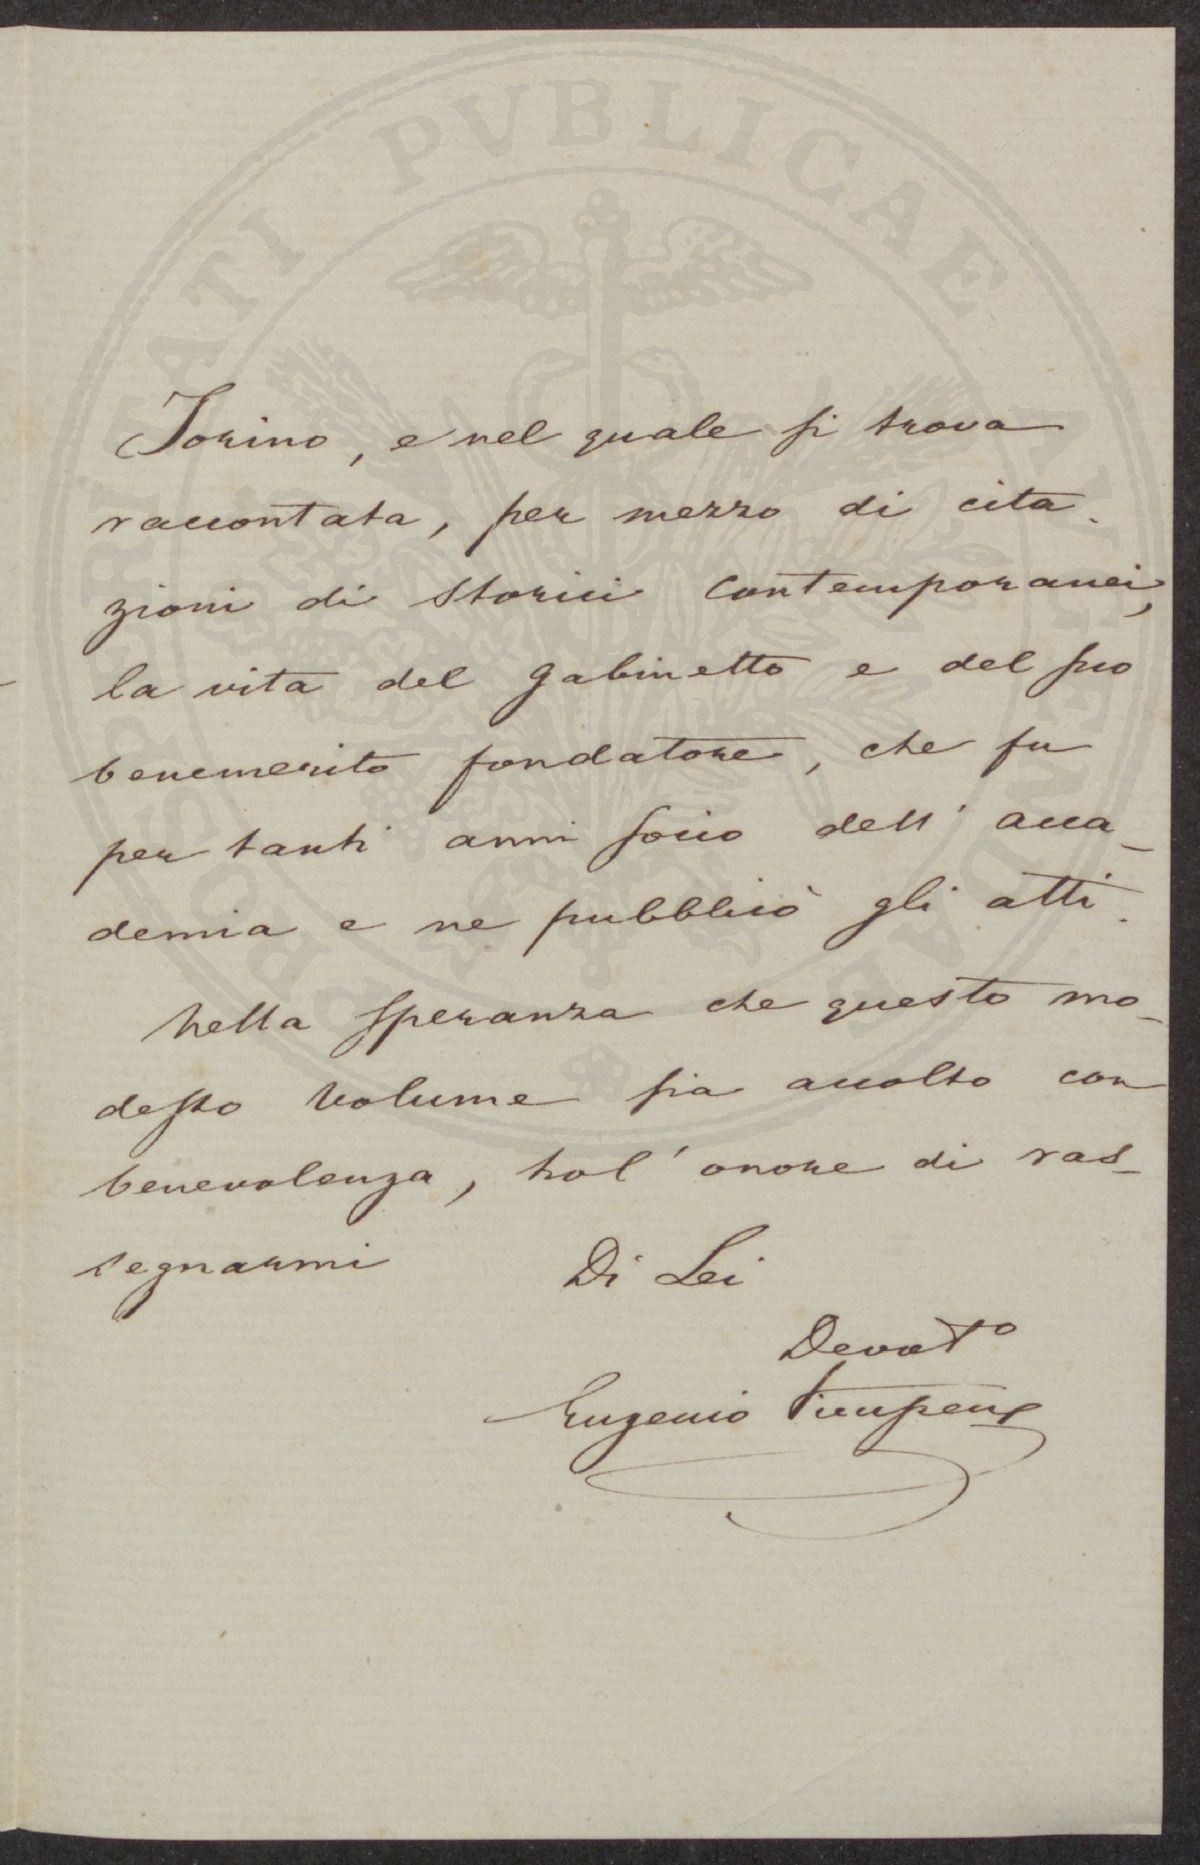 Torino, e nel quale si trova
raccontata, per mezzo di cita-
zioni di storici contemporanei,
la vita del gabinetto e del suo
benemerito fondatore, che fu
per tanti anni socio dell'acca-
demia e ne pubblicò gli atti.
Nella speranza che questo mo-
desto volume sia accolto con
benevolenza, ho l'onore di ras-
segnarmi
Di Lei
Devot.o
Eugenio